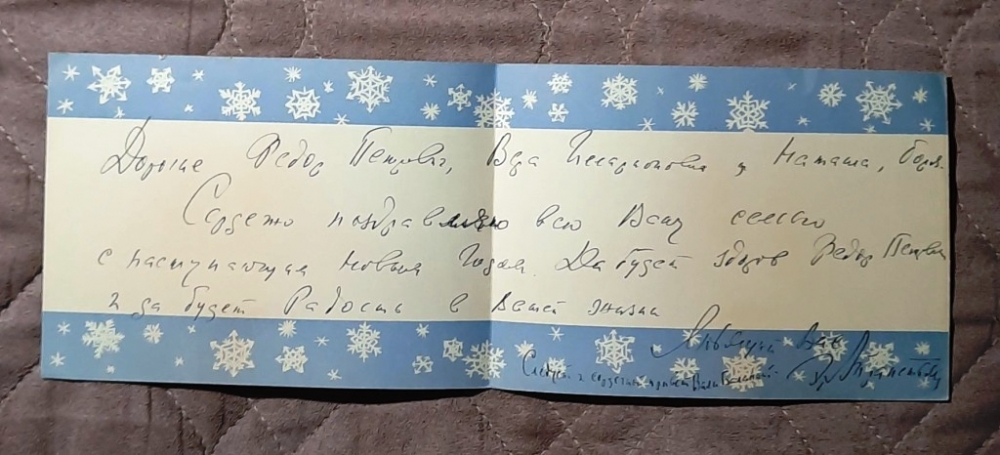 Дорогие Федор Петрович, Вера Илларионовна и Наташа, Боря.
Сердечно поздравляю всю Вашу семью
с наступающим Новым Годом. Да будет здоров Федор Петрович
и да будет Радость в Вашей жизни
Вас
сердечный привет